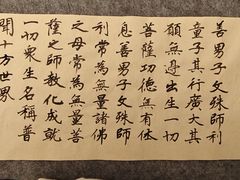 善男子文殊師利
童子其行廣大其
願無邊出生一切
菩薩功德無有休
息善男子文殊師
利常為無量諸佛
之母常為無量菩
薩之師教化成就
一切衆生名稱普
聞十方世界